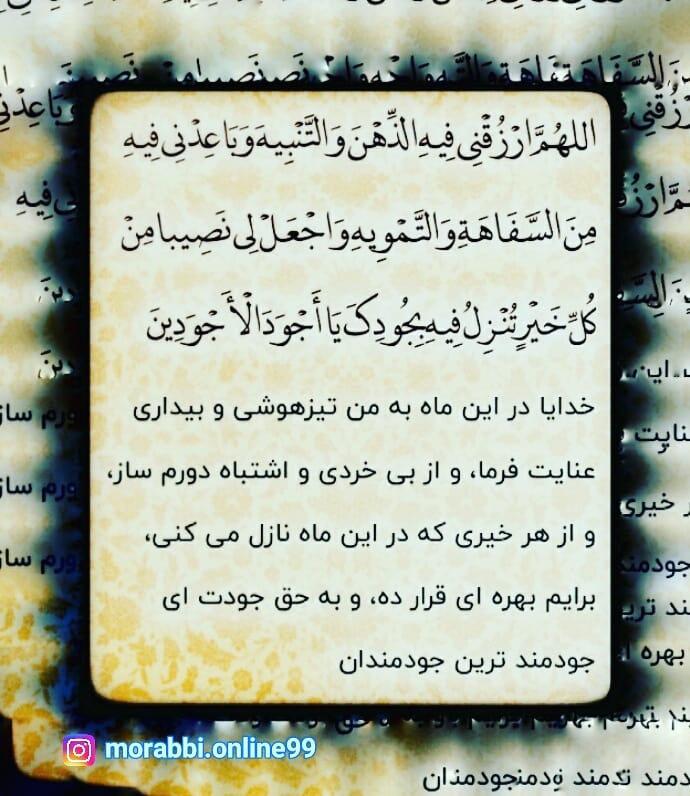 اللهُمَّ ارْزُقْنِي فِيهِ الذِّهْنَ وَالتَّنْبِيهَ وَبَاعِدْنِي فِيهِ
مِنَ السَّفَاهَةِ وَالتَّمْوِيهِ وَاجْعَلْ لِي نَصِيبا مِنْ
كُلِّ خَيْرٍ تُنْزِلُ فِيهِ بِجُودِكَ يَا أَجْوَدَ الْأَجْوَدِينَ
خدایا در این ماه به من تیزهوشی و بیداری
عنایت فرما، و از بی خردی و اشتباه دورم ساز،
و از هر خیری که در این ماه نازل می کنی،
برایم بهره ای قرار ده، و به حق جودت ای
جودمند ترین جودمندان
morabbi.online99